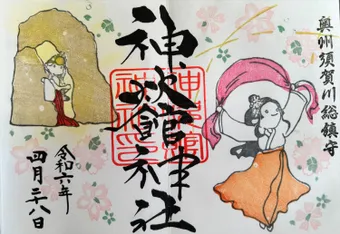 奥州須賀川総鎮守
神炊館神社
令和六年
四月二十八日